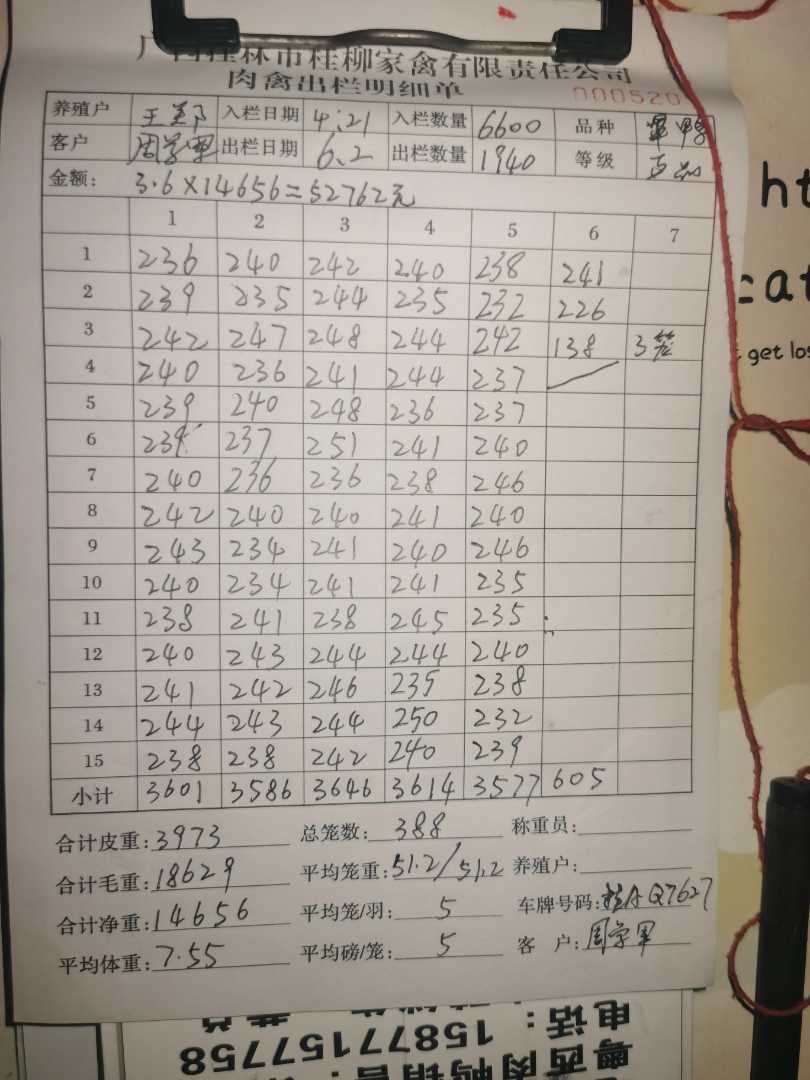 广西桂林市桂柳家禽有限责任公司
肉禽出栏明细单
000520
养殖户 入栏日期 4.21 入栏数量 6600 品种
客户 周学军 出栏日期 6.2 出栏数量 1940 等级 正品
金额: 3.6×14656=52762元
1 2 3 4 5 6 7
1 236 240 242 240 238 241
2 239 235 244 235 232 226
3 242 247 248 244 242 138 3笼
4 240 236 241 244 237
5 239 240 248 236 237
6 239 237 251 241 240
7 240 236 236 238 246
8 242 240 240 241 240
9 243 234 241 240 246
10 240 234 241 241 235
11 238 241 238 245 235
12 240 243 244 244 240
13 241 242 246 235 238
14 244 243 244 250 232
15 238 238 242 240 239
小计 3601 3586 3646 3614 3577 605
合计皮重: 3973 总笼数: 388 称重员:
合计毛重: 18629 平均笼重: 51.2/51.2 养殖户:
合计净重: 14656 平均笼/羽: 5 车牌号码: 桂A Q7627
平均体重: 7.55 平均磅/笼: 5 客 户: 周学军
ht
cat
get los
电话: 15877157758
粤西肉鸭销售: